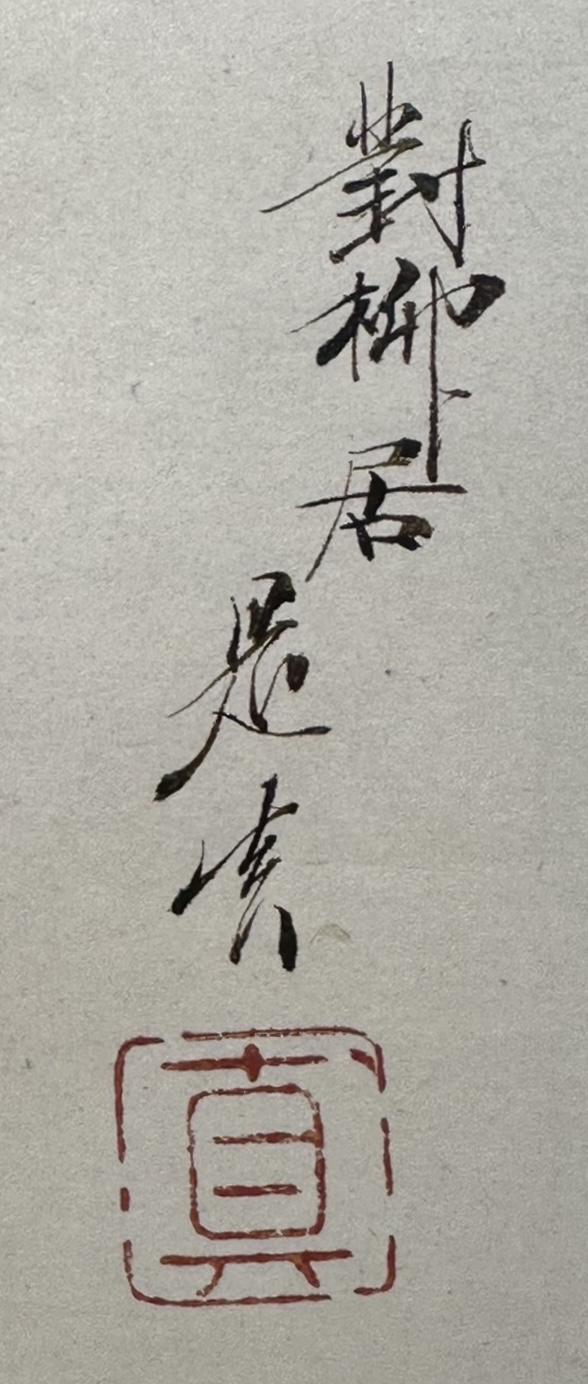 對柳居是真
真